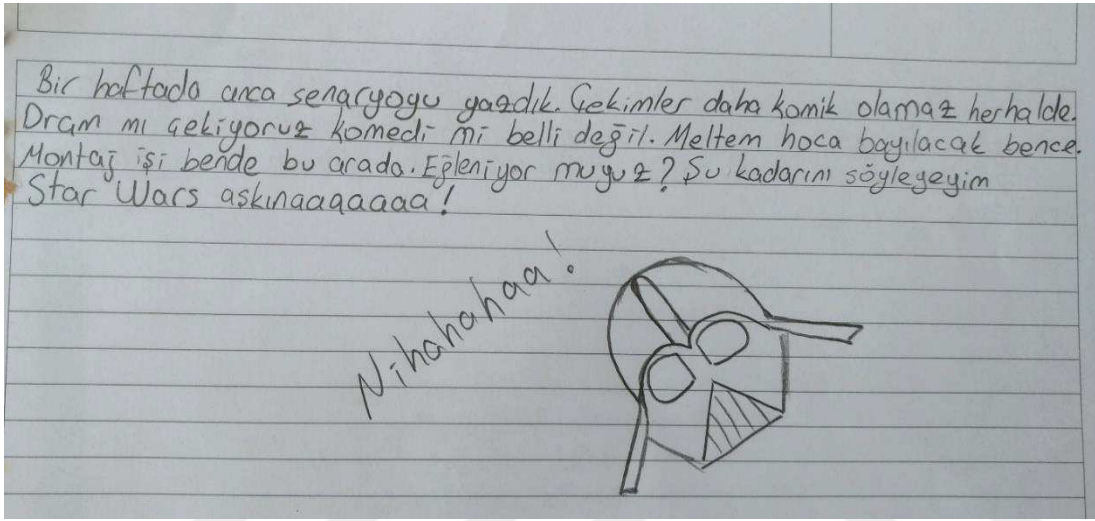 Bir haftada anca senaryoyu yazdık. Çekimler daha komik olamaz herhalde.
Dram mı çekiyoruz komedi mi belli değil. Meltem hoca bayılacak bence.
Montaj işi bende bu arada. Eğleniyor muyuz? Şu kadarını söyleyeyim
Star Wars aşkınaaaaaaa!
Nihahahaa!